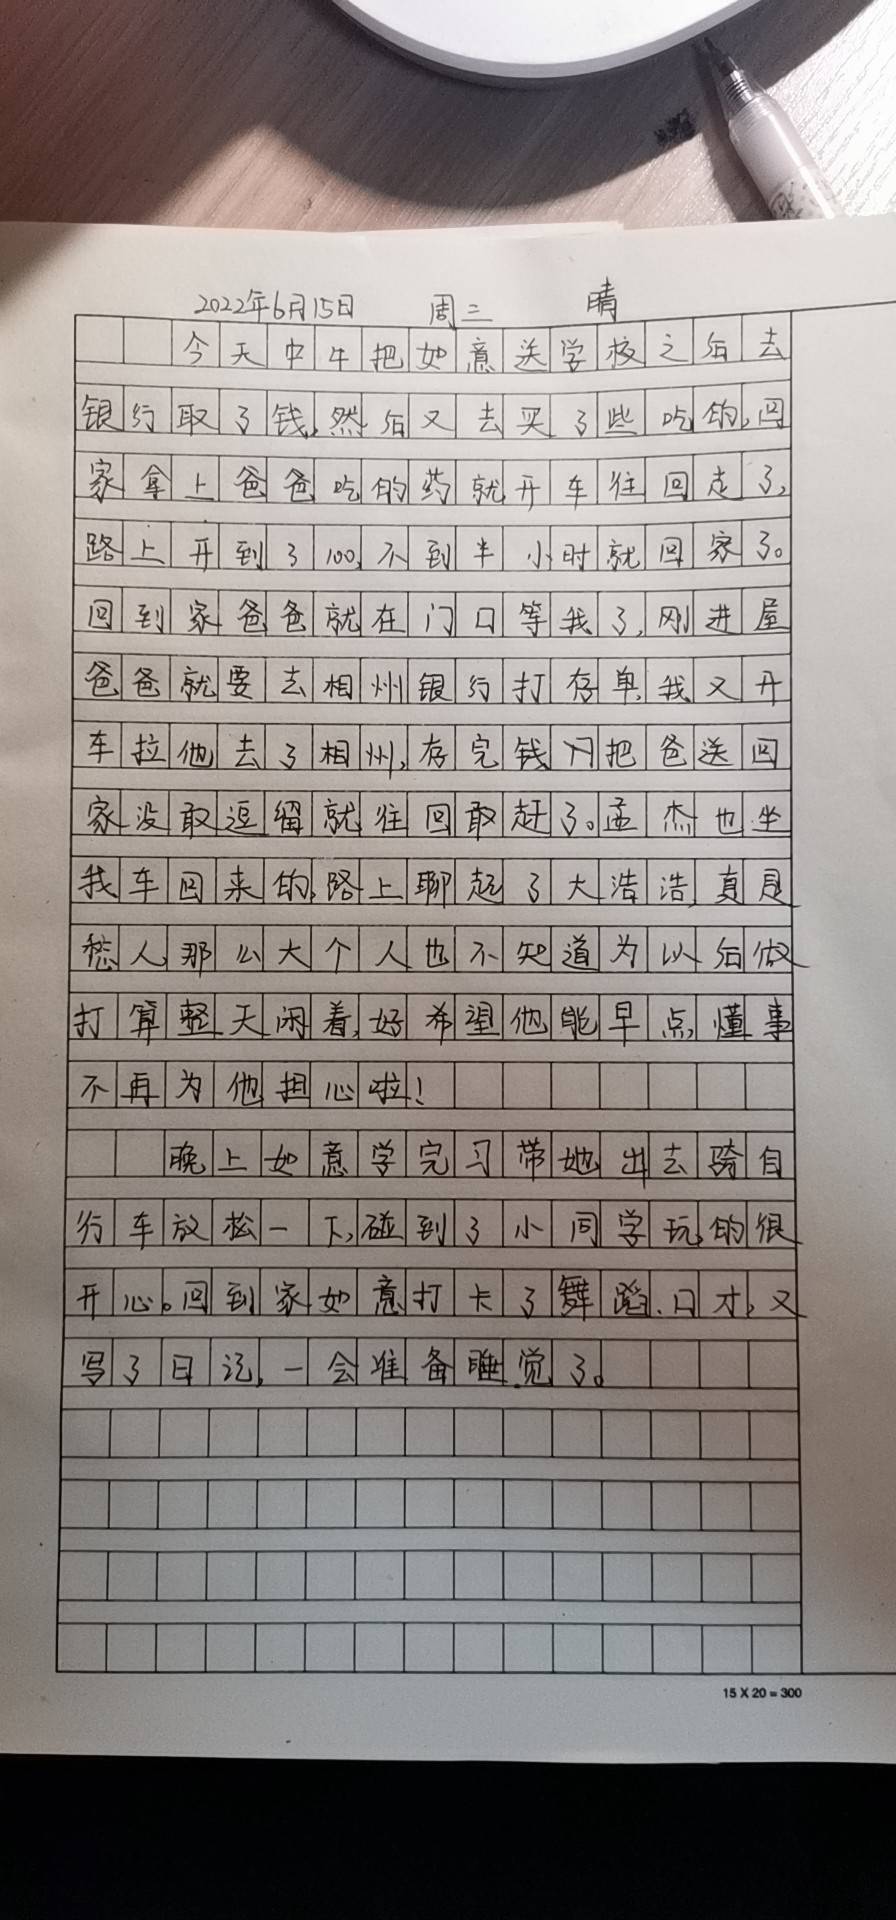 2022年6月15日 周三 晴
今天中午把如意送学校之后去
银行取了钱,然后又去买了些吃的,回
家拿上爸爸吃的药就开车往回走了,
路上开到了100,不到半小时就回家了。
回到家爸爸就在门口等我了,刚进屋
爸爸就要去相州银行打存单,我又开
车拉他去了相州,存完钱把爸送回
家没敢逗留就往回敢赶了。孟杰也坐
我车回来的,路上聊起了大浩浩,真是
愁人那么大个人也不知道为以后做
打算整天闲着,好希望他能早点懂事
不再为他担心啦!
晚上如意学完习带她出去骑自
行车放松一下,碰到了小同学玩的很
开心。回到家如意打卡了舞蹈、口才,又
写了日记,一会准备睡觉了。
15 X 20 = 300